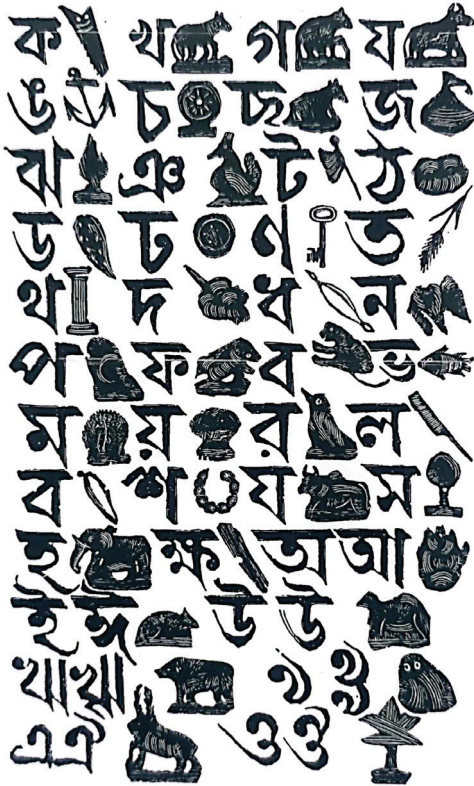 ক খ গ ঘ
ঙ চ ছ জ
ঝ ঞ ট ঠ
ড ঢ ণ ত
থ দ ধ ন
প ফ ব ভ
ম য় র ল
ব শ ষ স
হ ক্ষ অ আ
ই ঈ উ ঊ
ঋ ৠ ঌ ৡ
এ ঐ ও ঔ